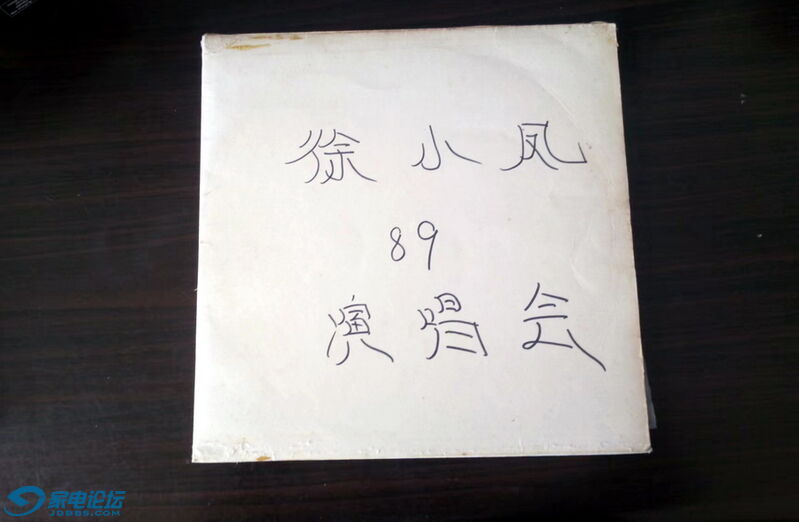 徐小凤
89
演唱会
家电论坛
JDBBS.COM